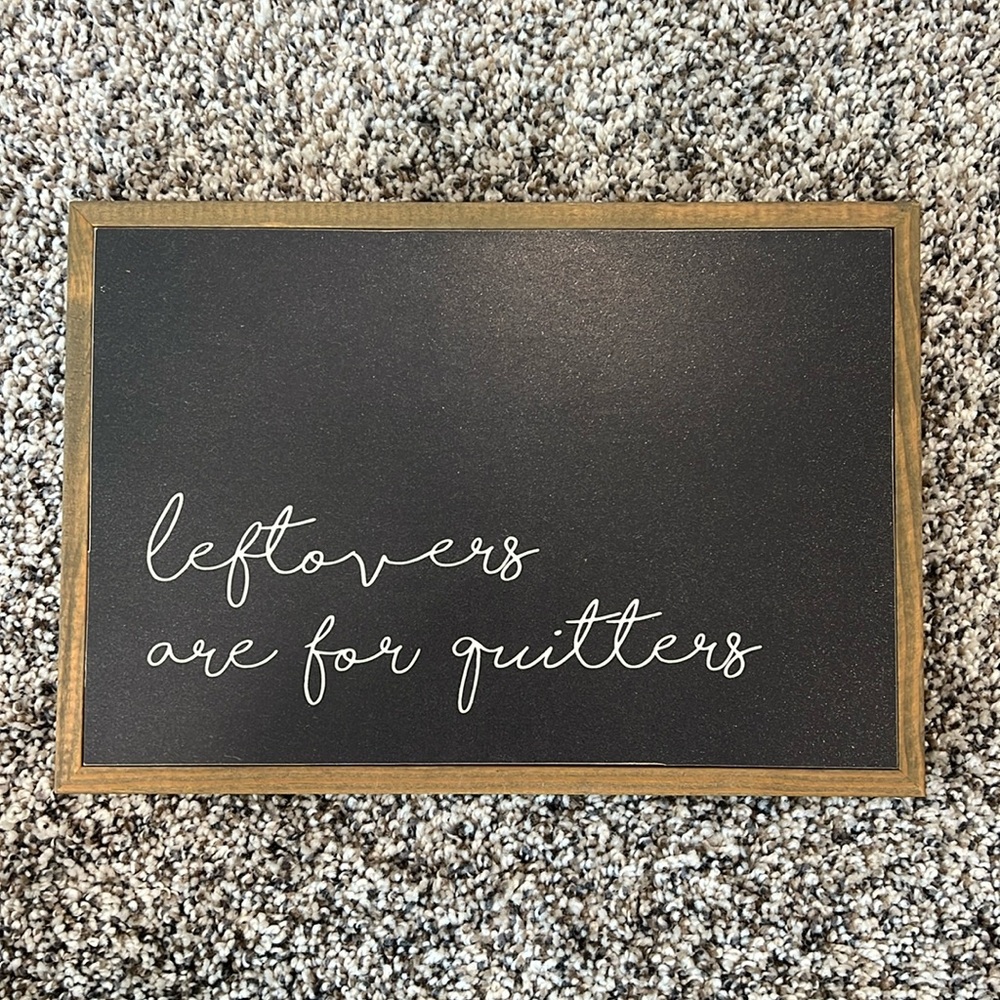 leftovers
are for quitters